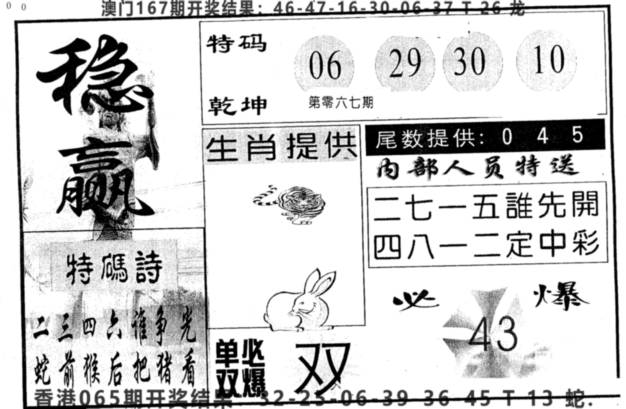 澳门167期开奖结果：46-47-16-30-06-37 T 26 龙
稳赢
特码
06 29 30 10
乾坤
第零六七期
生肖提供
尾数提供: 0 4 5
内部人员特送
二七一五誰先開
四八一二定中彩
特碼詩
二三四六谁争先
蛇前猴后把猪看
必爆
43
单双必爆
双
香港065期开奖结果 32-25-06-39-36-45 T 13 蛇.